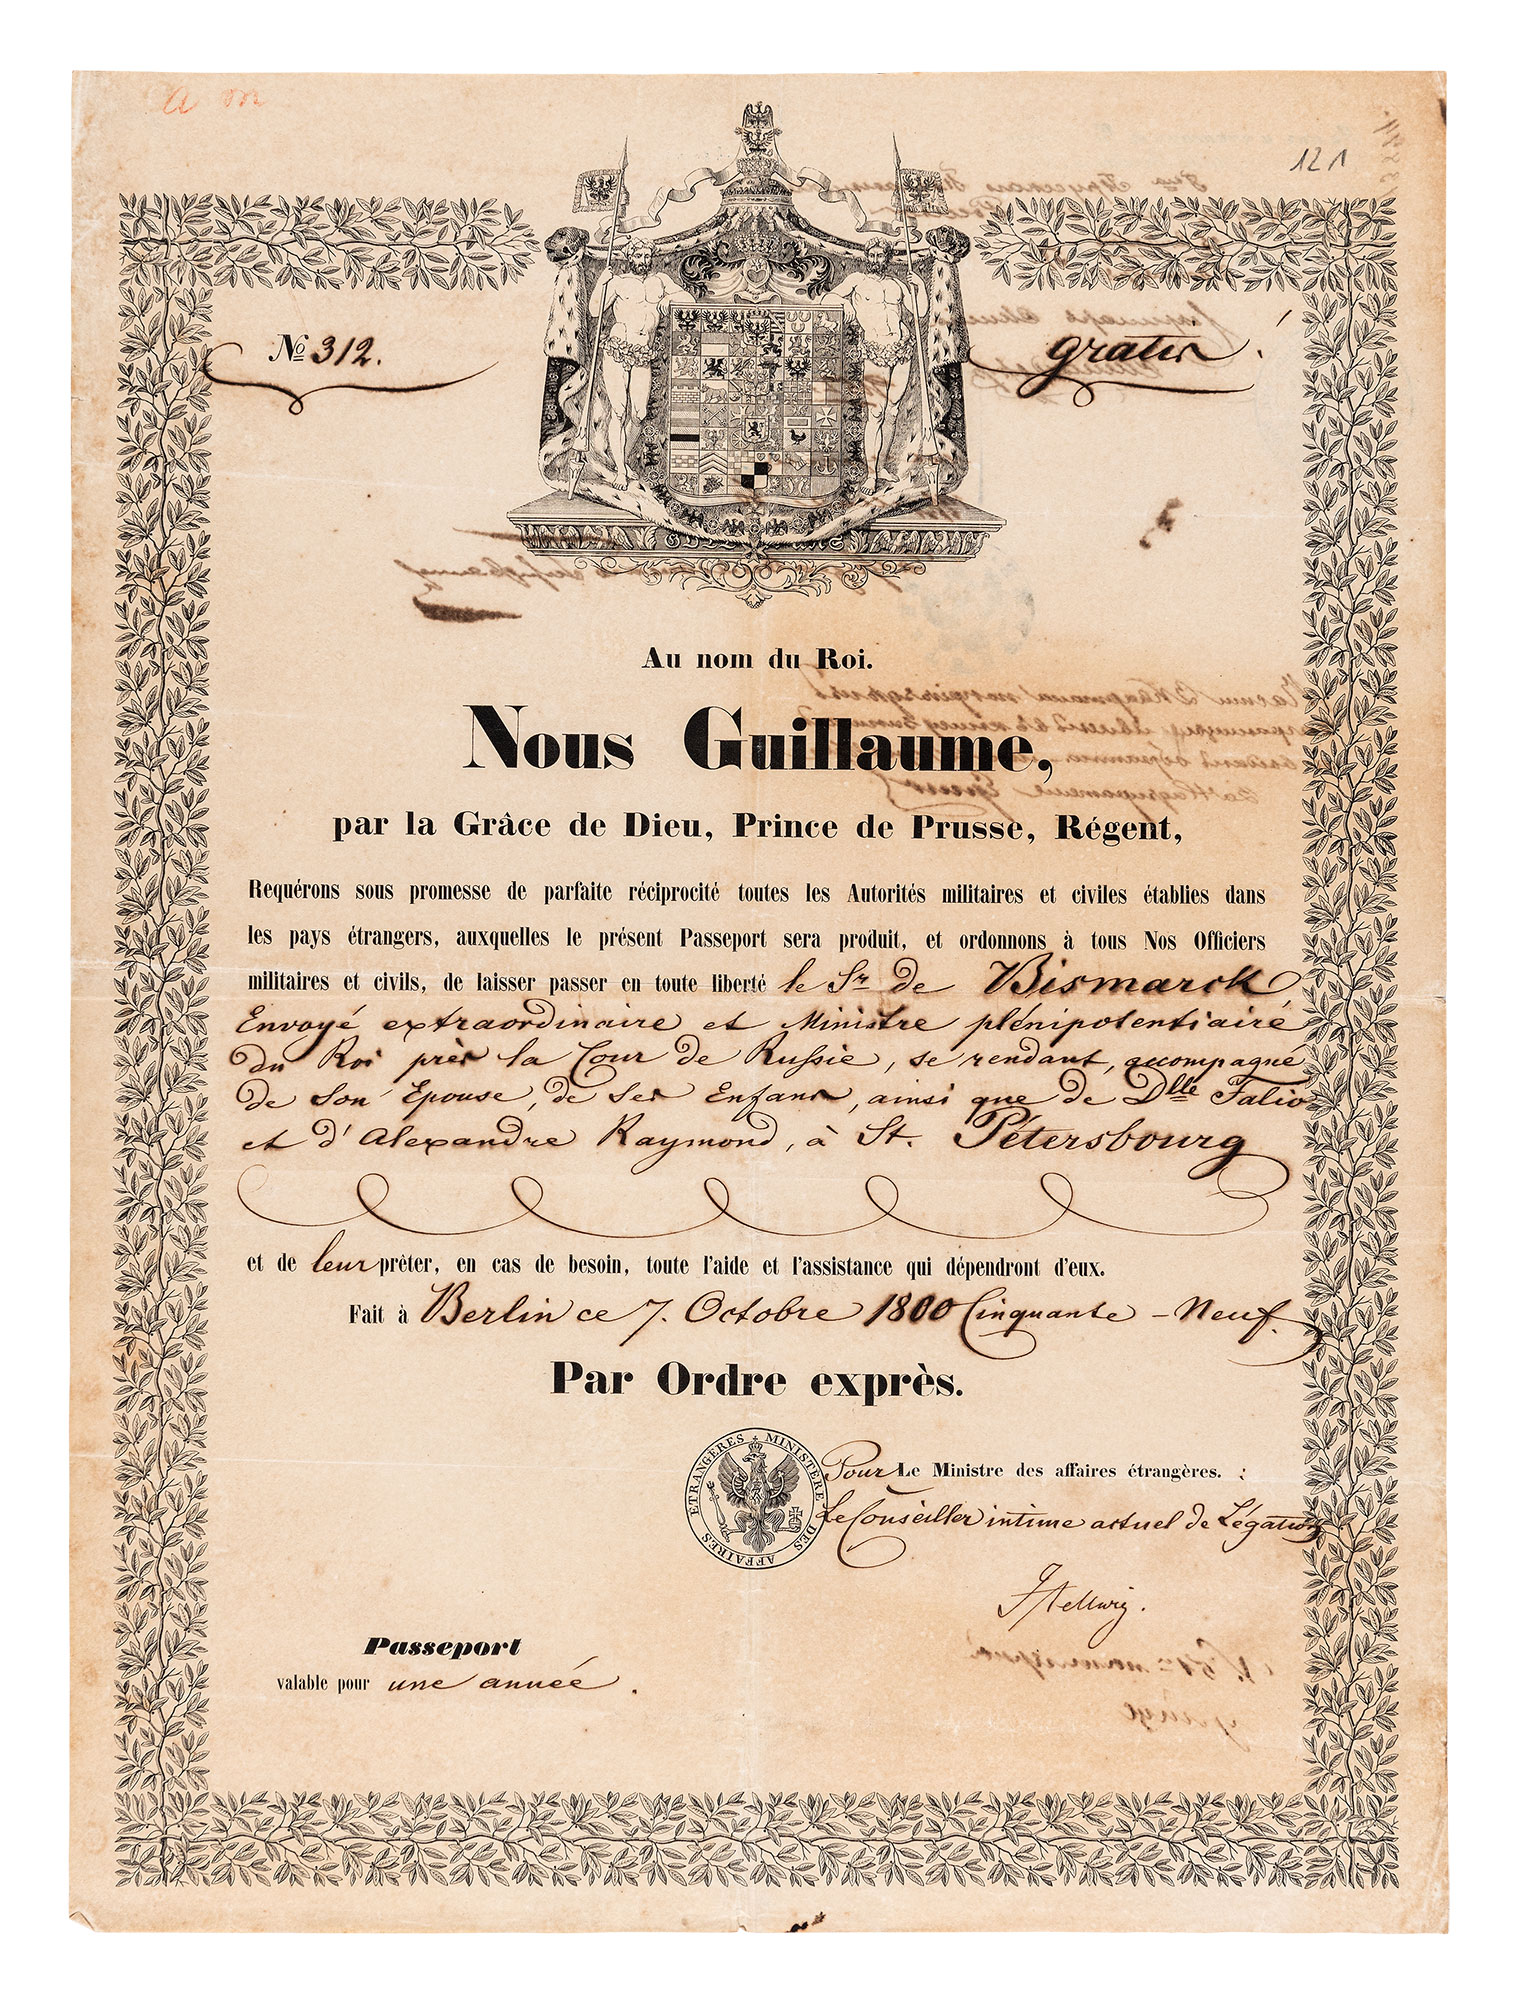 a m
121
No 312.
gratis.
Au nom du Roi.
Nous Guillaume,
par la Grâce de Dieu, Prince de Prusse, Régent,
Requérons sous promesse de parfaite réciprocité toutes les Autorités militaires et civiles établies dans
les pays étrangers, auxquelles le présent Passeport sera produit, et ordonnons à tous Nos Officiers
militaires et civils, de laisser passer en toute liberté le Sr de Bismarck
Envoyé extraordinaire et Ministre plénipotentiaire
du Roi près la Cour de Russie, se rendant, accompagné
de son Epouse, de ses Enfans, ainsi que de Dlle
et d'Alexandre Raymond, à St. Pétersbourg
et de leur prêter, en cas de besoin, toute l'aide et l'assistance qui dépendront d'eux.
Fait à Berlin ce 7. Octobre 1800 Cinquante-Neuf.
Par Ordre exprès.
MINISTÈRE DES AFFAIRES ETRANGÈRES
Pour Le Ministre des affaires étrangères. :
Le Conseiller intime actuel de Légation
Hellwig.
Passeport
valable pour une année.